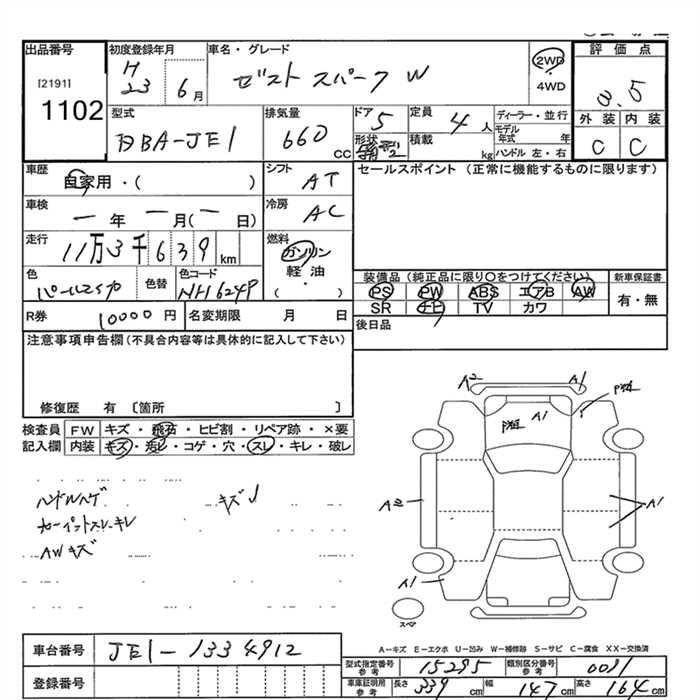 出品番号 初度登録年月 車名・グレード 評価点
[2191] H23 6月 ゼスト スパーク W 2WD 3.5
1102 4WD
外装 内装
型式 排気量 ドア 5 定員 4人 ディーラー・並行
DBA-JE1 660 cc 形状 積載 kg モデル年式 年 C C
ハンドル 左・右
車歴 自家用・( ) シフト AT セールスポイント(正常に機能するものに限ります)
車検 ー年 ー月(ー日) 冷房 AC
走行 11万3千639km 燃料 ガソリン
軽油
( ・ )
色 色替 色コード 装備品(純正品に限り○をつけてください) 新車保証書
NH624P PS PW ABS エアB AW 有・無
SR ナビ TV カワ
R券 10000円 名変期限 月 日 後日品
注意事項申告欄(不具合内容等は具体的に記入して下さい)
修復歴 有 〔箇所 〕
検査員 FW キズ・飛石・ヒビ割・リペア跡・×要
記入欄 内装 キズ・汚レ・コゲ・穴・スレ・キレ・破レ
ハンドルハゲ キズ
カーペットスレ・キレ
AWキズ
A2 A1
A1
A2 A1
A1
スペア
A-キズ E-エクボ U-凹み W-補修跡 S-サビ C-腐食 XX-交換済
車台番号 JE1-1334912
型式指定番号 参考 15295 類別区分番号 参考 0081
登録番号 車庫証明用 参考 長さ 339cm 幅 147cm 高さ 164cm